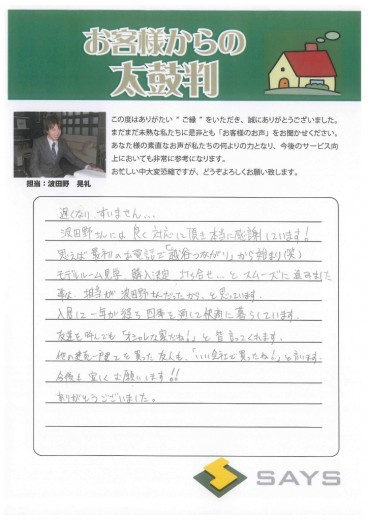 お客様からの
太鼓判
この度はありがたい“ご縁”をいただき、誠にありがとうございました。
まだまだ未熟な私たちに是非とも「お客様のお声」をお聞かせください。
あなた様の素直なお声が私たちの何よりの力となり、今後のサービス向
上においても非常に参考になります。
お忙しい中大変恐縮ですが、どうぞよろしくお願い致します。
担当：波田野 晃礼
遅くなり、すいません...
波田野さんには良く対応して頂き本当に感謝しています!
思えば最初のお電話で「越谷つながり」から始まり(笑)
モデルルーム見学、購入決定、打ち合せ...とスムーズに進みました
事は、担当が波田野さんだったから、と思っています。
入居に一年が経ち四季を通して快適に暮らしています。
友達を呼んでも「オシャレな家だね!」と皆言ってくれます。
他の建売一戸建てを買った友人も、「いい会社で買ったね!」と言います。
今後も宜しくお願いします!!
ありがとうございました。
SAYS